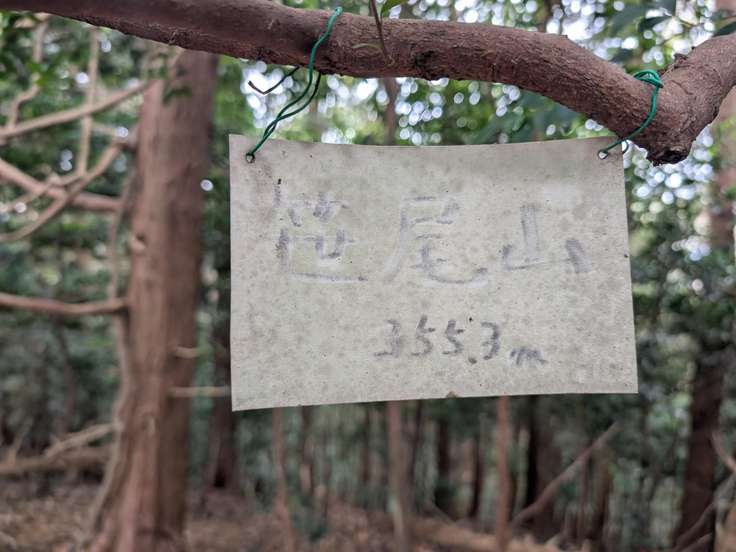 笹尾山
355.3m